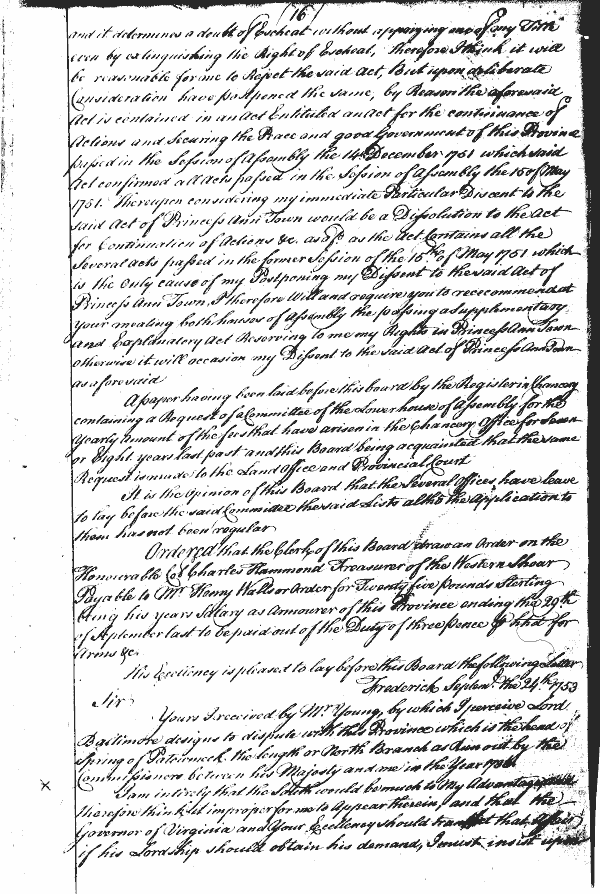 (16)
and it determines a doubt of Escheat without apprizing me of my Title
even by extinguishing the Right of Escheat, therefore I think it will
be reasonable for me to Reject the said Act, But upon deliberate
Consideration have postponed the same, by Reason the aforesaid
Act is contained in an Act Entituled an Act for the continuance of
Actions and Securing the Peace and good Government of this Province
passed in the Session of Assembly the 14 December 1751 which said
Act confirmed all Acts passed in the Session of Assembly the 15 of May
1751. Thereupon considering my immediate Particular Discent to the
said Act of Princess Ann Town would be a Dissolution to the Act
for Continuation of Actions &c. as afd. as the Act Contains all the
Several acts passed in the former Session of the 15th of May 1751 which
is the only cause of my Postponing my Dissent to the said Act of
Princess Ann Town, I therefore Will and require you to reccommend at
your meeting both houses of Assembly the passing a Supplementary
and Explanatory Act Reserving to me my Rights in Princess Ann Town
otherwise it will occasion my Dissent to the said Act of Princess Ann Town
as aforesaid
A paper having been laid before this board by the Register in Chancery
containing a Request of a Committee of the Lower house of Assembly for the
Yearly amount of the fees that have arisen in the Chancery Office for Seven
or Eight years last past and this Board being acquainted that the same
Request is made to the Land Office and Provincial Court
It is the Opinion of this Board that the Several Offices have leave
to lay before the said Committee the said Lists altho the Application to
them has not been regular
Ordered that the Clerk of this Board draw an Order on the
Honourable Col Charles Hammond Treasurer of the Western Shoar
Payable to Mr Henny Walls or Order for Twenty five Pounds Sterling
being his years Salary as Armourer of this Province ending the 29th
of September last to be paid out of the Duty of three pence P hhd for
Arms &c.
His Excellency is pleased to lay before this Board the following Letter
Frederick Septemr. the 24th 1753
Sir
Yours I received by Mr Young, by which I perceive Lord
Baltimore designs to dispute with this Province which is the head of
Spring of Patowmeck the length or North Branch as Run out by the
Commissioners between his Majesty and me in the Year
I am intirely that the South would be much to My Advantage
therefore think it improper for me to appear therein, and that the
Governor of Virginia and Your Excellency should transact that Affair
if his Lordship should obtain his demand, I must insist upon